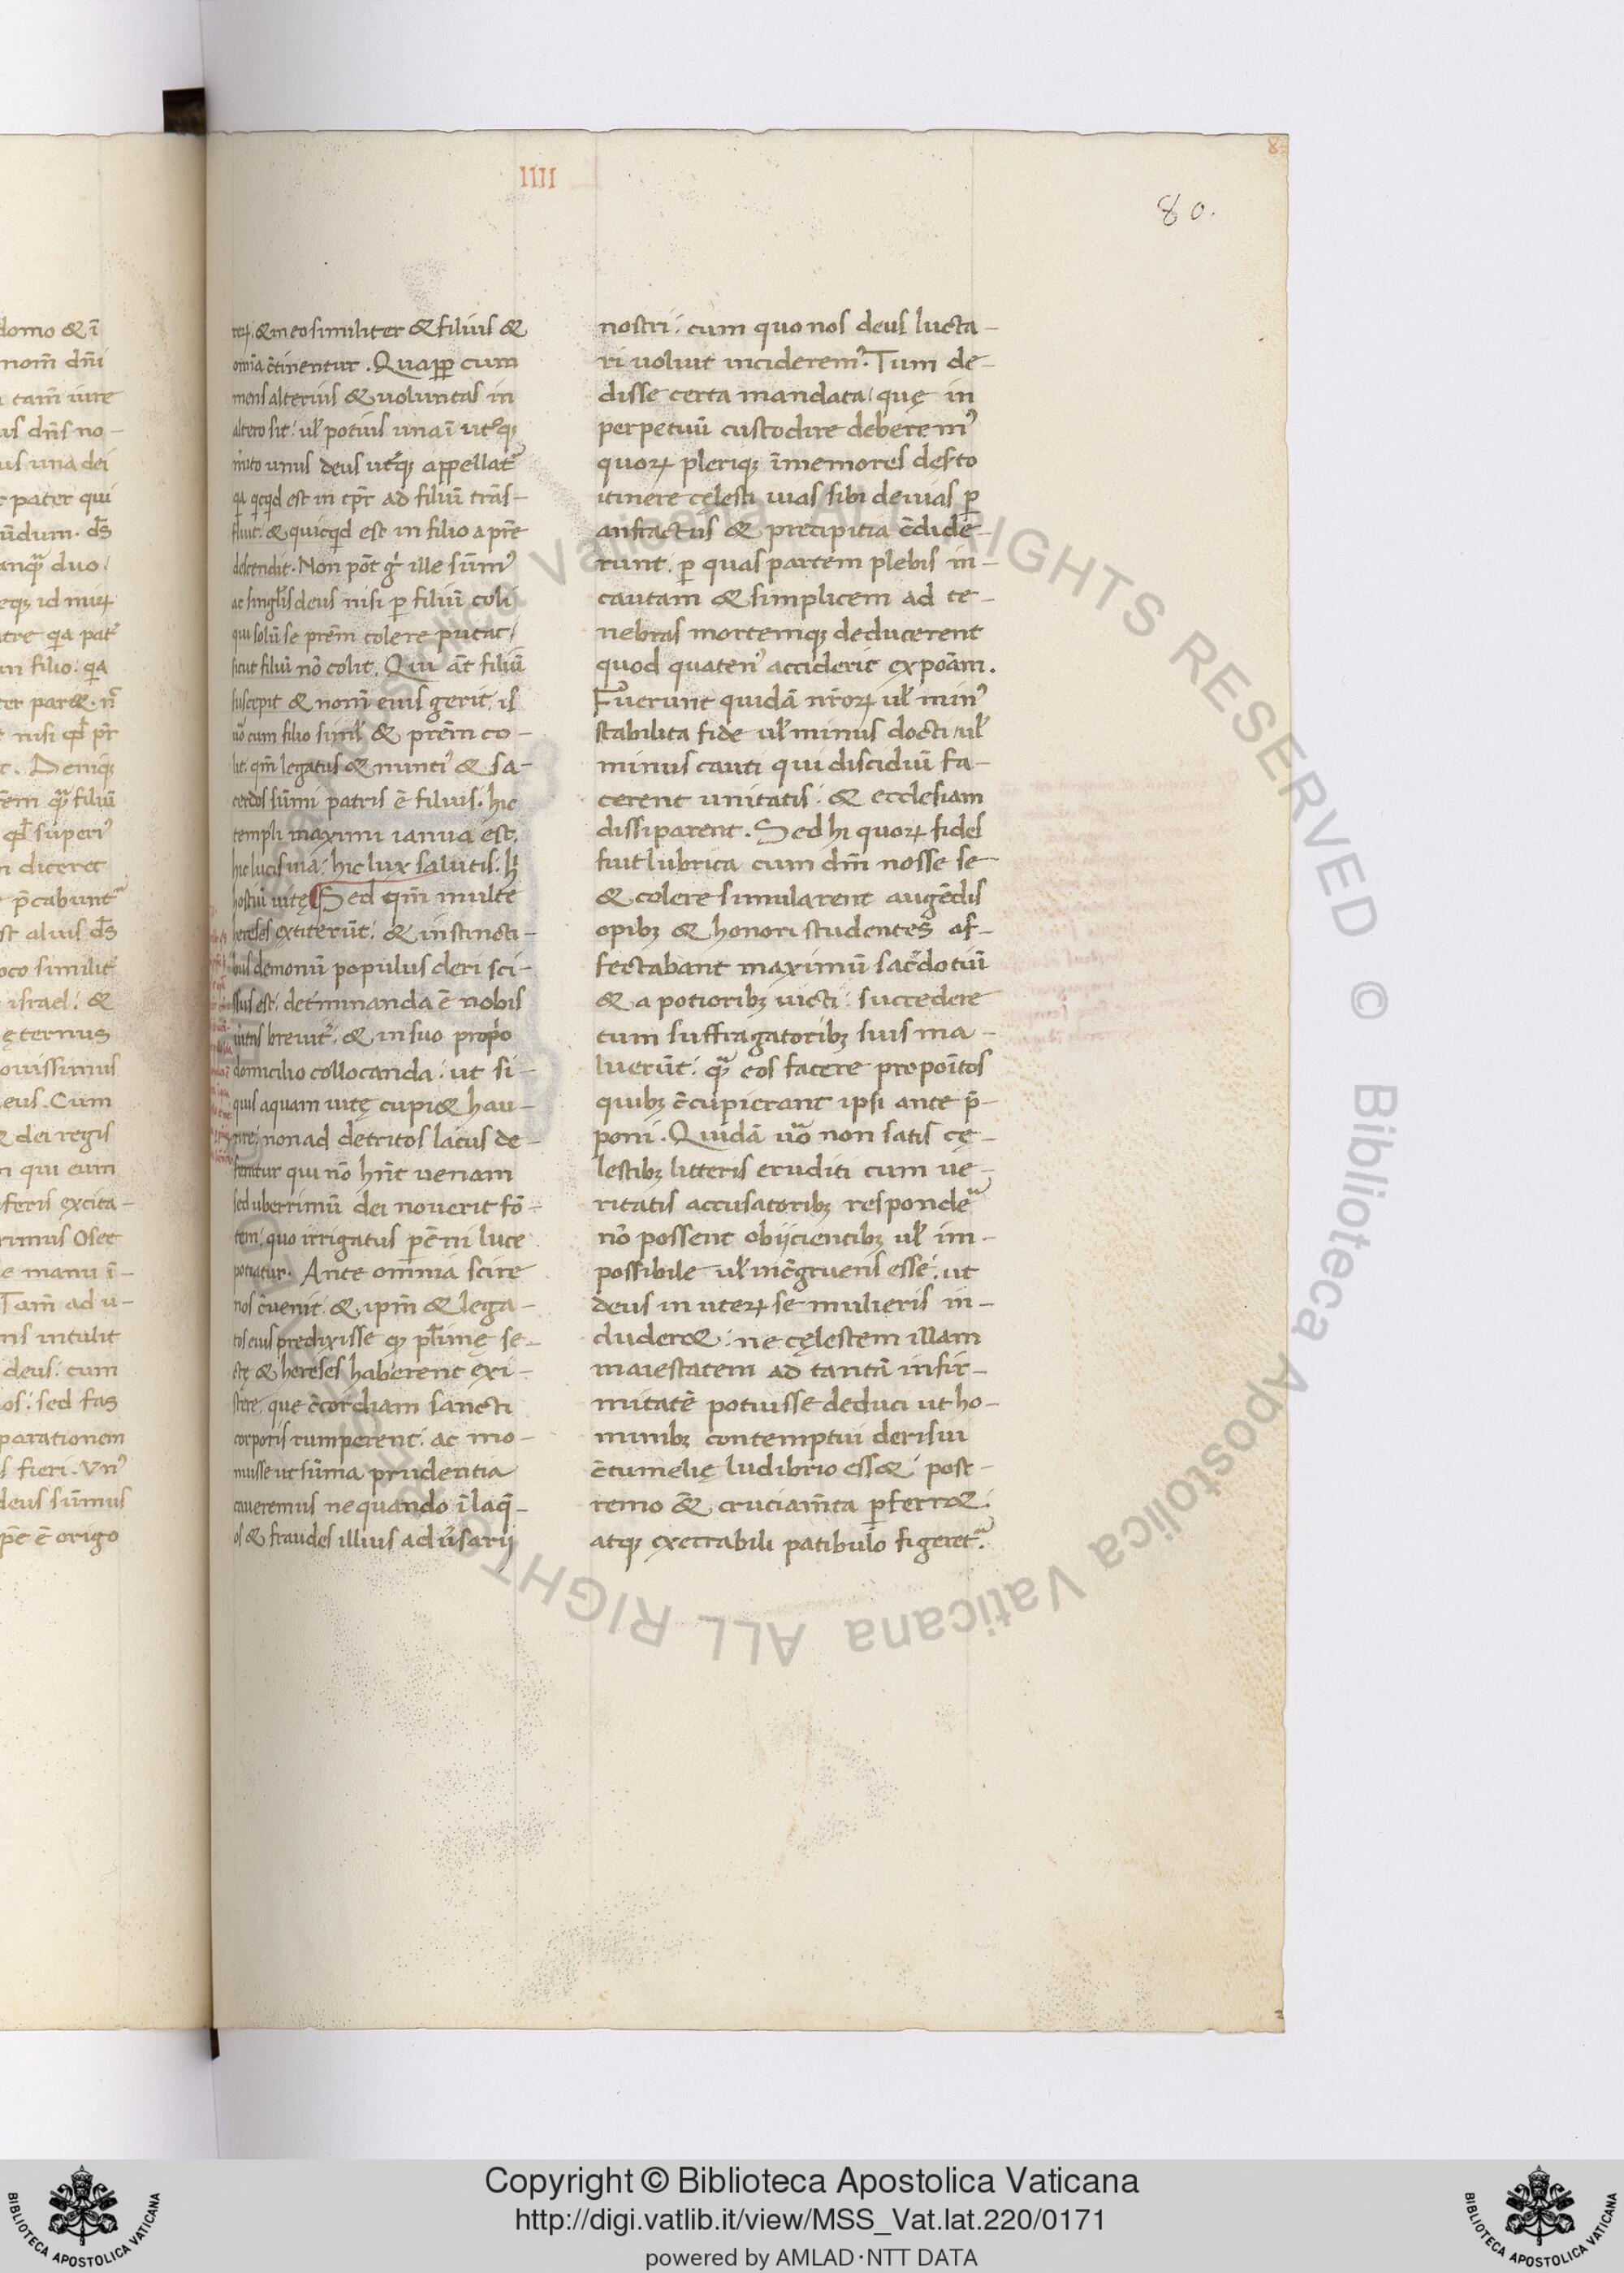 IIII
80.
domo & ī
nom̄ dn̄i
tam̄ iure
us dn̄s no-
us una dei
pater qui
ūdum. ds̄
duo
id
qa pat
in filio. qa
nisi qd pr̄
Deniq;
filiū
qd superi9
diceret
p̄cabunt
st alius ds̄
oco similit
israel: &
ęternus
ouissimus
eus. Cum
& dei regis
qui eum
feris excita-
rimus Osee
e manu ī-
Tam̄ ad u-
ns intulit
deus: cum
os: sed fas
parationem
s fieri. Vn9
deus sūmus
ē origo
reꝝ. & in eo similiter & filius &
omīa c̄tinentur. Quapp cum
mens alterius & uoluntas in
altero sit: ul' potius una ī utoq;
m̄ito unus deus ut'q; appellat
qa qcqd est in tpr̄ ad filiū trās-
fluit: & quicqd est in filio a pr̄e
descendit. Non pōt g ille sūm9
ac singl'is deus nisi ꝑ filiū coli
qui solū se pr̄em colere putat/
sicut filiū nō colit. Qui āt filiū
suscepit & nom̄ eius gerit, is
uo cum filio simul & pr̄em co-
lit. qm̄ legatus & nunti9 & sa-
cerdos sūmi patris ē filius. hic
templi maximi ianua est.
hic lucis uia: hic lux salutis: h
hostiū uitę Sed qm̄ multe
hereses extiterūt: & instincti-
bus demonū populus dei sci-
ssus est: detminanda ē nobis
uitas breuit: & in suo propo
domicilio collocanda: ut si-
quis aquam uitę cupi& hau-
rire: non ad detritos lacus de-
feratur qui nō hn̄t uenam
sed uberrimū dei nouerit fō-
tem: quo irrigatus ꝑēni luce
potiatur. Ante omnia scire
nos c̄uenit: & ipm̄ & lega-
tos eius predixisse q pl'imę se-
ctę & hereses haberent exi-
stere: que c̄cordiam sancti
corporis rumperent: ac mo-
nuisse ut sūma prudentia
caueremus ne quando ī laq̄-
os & fraudes illius adu'sarij
nostri: cum quo nos deus lucta-
ri uoluit incideremꝰ. Tum de-
disse certa mandata/ quę in
perpetuū custodire deberemꝰ
quoꝝ pleriq; īmemores deſto
itinere cęlesti uias sibi deuias ꝑ
anfractus & precipitia c̄dide-
runt. ꝑ quas partem plebis in-
cautam & simplicem ad te-
nebras mortemq; deducerent
quod quatenꝰ acciderit expoām.
Fuerunt quidā nr̄oꝝ ul' minꝰ
stabilita fide ul' minus docti/ ul'
minus cauti qui discidiū fa-
cerent unitatis: & ecclesiam
dissiparent. Sed hi quoꝝ fides
fuit lubrica cum dm̄ nosse se
& colere simularent augēdis
opibꝫ & honori studentes af-
fectabant maximū sacdotiū
& a potioribꝫ uicti: succedere
cum suffragatoribꝫ suis ma-
luerūt: qa eos facere propoītos
quibꝫ c̄cupierant ipsi ante p̄-
poni. Quidā uo non satis cę-
lestibꝫ litteris eruditi cum ue-
ritatis accusatoribꝫ respondea
nō possent obijcientibꝫ ul' im-
possibile ul' inc̄gruens esse: ut
deus in uteꝝ se mulieris in-
cluderet: ne cęlestem illam
maiestatem ad tantā infir-
mitatē potuisse deduci ut ho-
minibꝫ contemptui derisui
c̄tumelię ludibrio ess&: post-
remo & cruciam̄ta ꝑferr&:
atq; execrabili patibulo figeret.
Copyright © Biblioteca Apostolica Vaticana
http://digi.vatlib.it/view/MSS_Vat.lat.220/0171
powered by AMLAD·NTT DATA
BIBLIOTECA APOSTOLICA VATICANA
BIBLIOTECA APOSTOLICA VATICANA